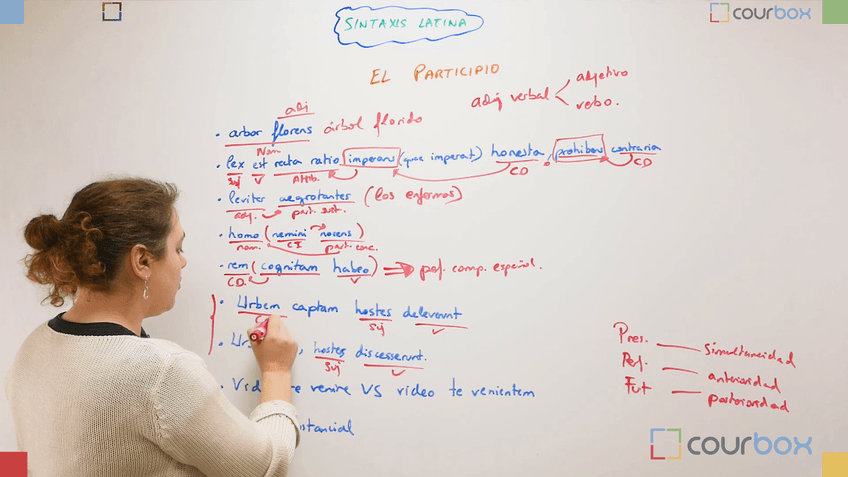 courbox
SINTAXIS LATINA
EL PARTICIPIO
adj verbal
adjetivo
verbo.
adj
· arbor florens árbol florido
Nom
· lex est recta ratio imperans (quae imperat) honesta, prohibens contraria
Suj V Atrib. CD CD
· leviter aegrotantes (los enfermos)
adj. part. sust.
· homo (nemini nocens)
nom. CI part. conc.
· rem (cognitam habeo) perf. comp. español.
CD. V
· Urbem captam hostes deleverunt
Suj V
, hostes discesserunt.
Suj V
· Vid venire VS video te venientem
stancial
Pres. simultaneidad
Perf. anterioridad
Fut posterioridad
courbox